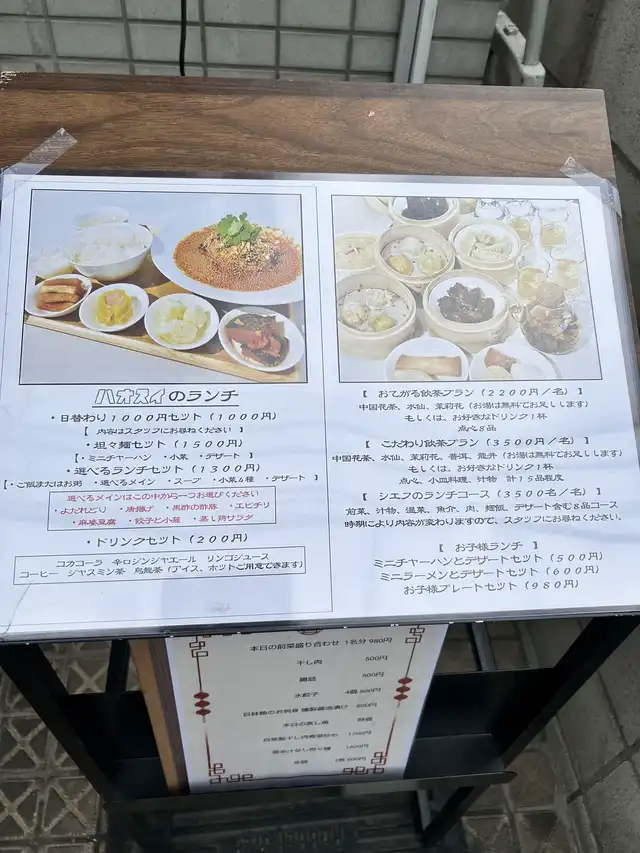 ハオスイのランチ
・日替わり1000円セット(1000円)
【 内容はスタッフにお尋ねください 】
・坦々麺セット(1500円)
【・ミニチャーハン ・小菜 ・デザート 】
・選べるランチセット(1300円)
【・ご飯またはお粥 ・選べるメイン ・スープ ・小菜4種 ・デザート 】
選べるメインはこの中から一つお選びください
・よだれどり ・唐揚げ ・黒酢の酢豚 ・エビチリ
・麻婆豆腐 ・餃子と小籠 ・蒸し鶏サラダ
・ドリンクセット(200円)
コカコーラ 辛口ジンジャエール リンゴジュース
コーヒー ジャスミン茶 烏龍茶(アイス、ホットご用意できます)
【 おてがる飲茶プラン(2200円/名)】
中国花茶、水仙、茉莉花(お湯は無料でお足しします)
もしくは、お好きなドリンク1杯
点心8品
【 こだわり飲茶プラン(3500円/名)】
中国花茶、水仙、茉莉花、普洱、龍井(お湯は無料でお足しします)
もしくは、お好きなドリンク1杯
点心、小皿料理、汁物 計15品程度
【 シェフのランチコース(3500/名)】
前菜、汁物、温菜、魚介、肉、麺飯、デザート含む8品コース
時期により内容が変わりますので、スタッフにお尋ねください。
【 お子様ランチ 】
ミニチャーハンとデザートセット(500円)
ミニラーメンとデザートセット(600円)
お子様プレートセット(980円)
本日の前菜盛り合わせ 1名分 980円
干し肉 500円
500円
水餃子 4個 600円
800円
本日の蒸し魚 時価
1200円
1600円